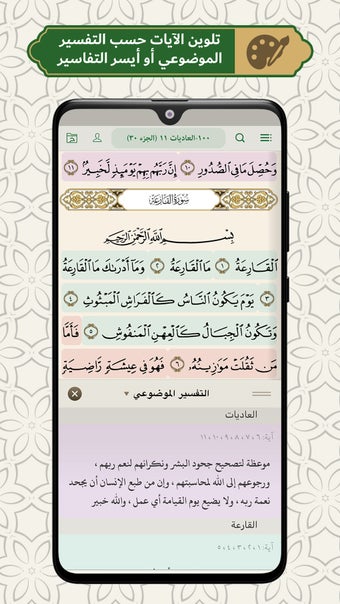 تلوين الآيات حسب التفسير
الموضوعي أو أيسر التفاسير
١٠٠-العاديات ١١ (الجزء ٣٠)
وَحُصِّلَ مَا فِي ٱلصُّدُورِ ١٠ إِنَّ رَبَّهُم بِهِمْ يَوْمَئِذٍ لَّخَبِيرٌۢ ١١
سُورَةُ القَارِعَةِ
بِسْمِ ٱللَّهِ ٱلرَّحْمَٰنِ ٱلرَّحِيمِ
ٱلْقَارِعَةُ ١ مَا ٱلْقَارِعَةُ ٢ وَمَآ أَدْرَىٰكَ مَا ٱلْقَارِعَةُ
٣ يَوْمَ يَكُونُ ٱلنَّاسُ كَٱلْفَرَاشِ ٱلْمَبْثُوثِ ٤
وَتَكُونُ ٱلْجِبَالُ كَٱلْعِهْنِ ٱلْمَنفُوشِ ٥ فَأَمَّا
مَن ثَقُلَتْ مَوَٰزِينُهُۥ ٦ فَهُوَ فِي عِيشَةٍ رَّاضِيَةٍ
التفسير الموضوعي
العاديات
آية: ٦، ٧، ٨، ٩، ١٠، ١١
موعظة لتصحيح جحود البشر ونكرانهم لنعم ربهم ،
ورجوعهم إلى الله لمحاسبتهم ، وإن من طبع الإنسان أن يجحد
نعمة ربه ، ولا يضيع يوم القيامة أي عمل ، والله خبير
القارعة
آية: ١، ٢، ٣، ٤، ٥